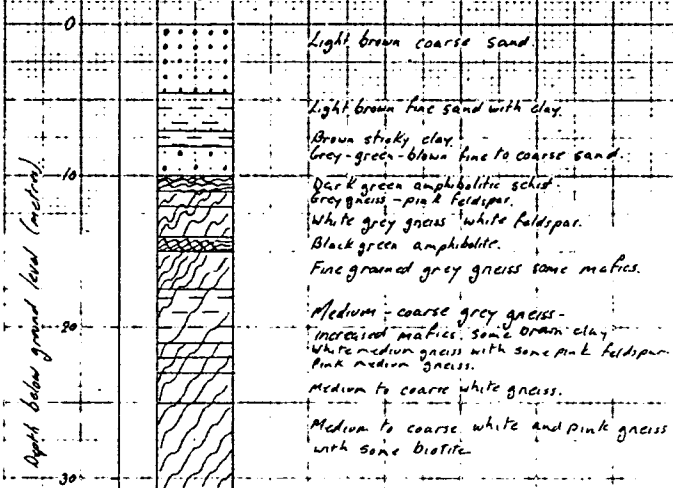 0
Light brown coarse sand.
Light brown fine sand with clay.
Brown sticky clay.
Grey-green-blown fine to coarse sand.
10
Dark green amphibolitic schist
Grey gneiss - pink feldspar.
White grey gneiss white feldspar.
Black green amphibolite.
Fine grained grey gneiss some mafics.
Medium - coarse grey gneiss -
increased mafics. Some brown clay
20
White medium gneiss with some pink feldspar.
Pink medium gneiss.
Medium to coarse white gneiss.
Medium to coarse white and pink gneiss
with some biotite
30
Depth below ground level (metres)